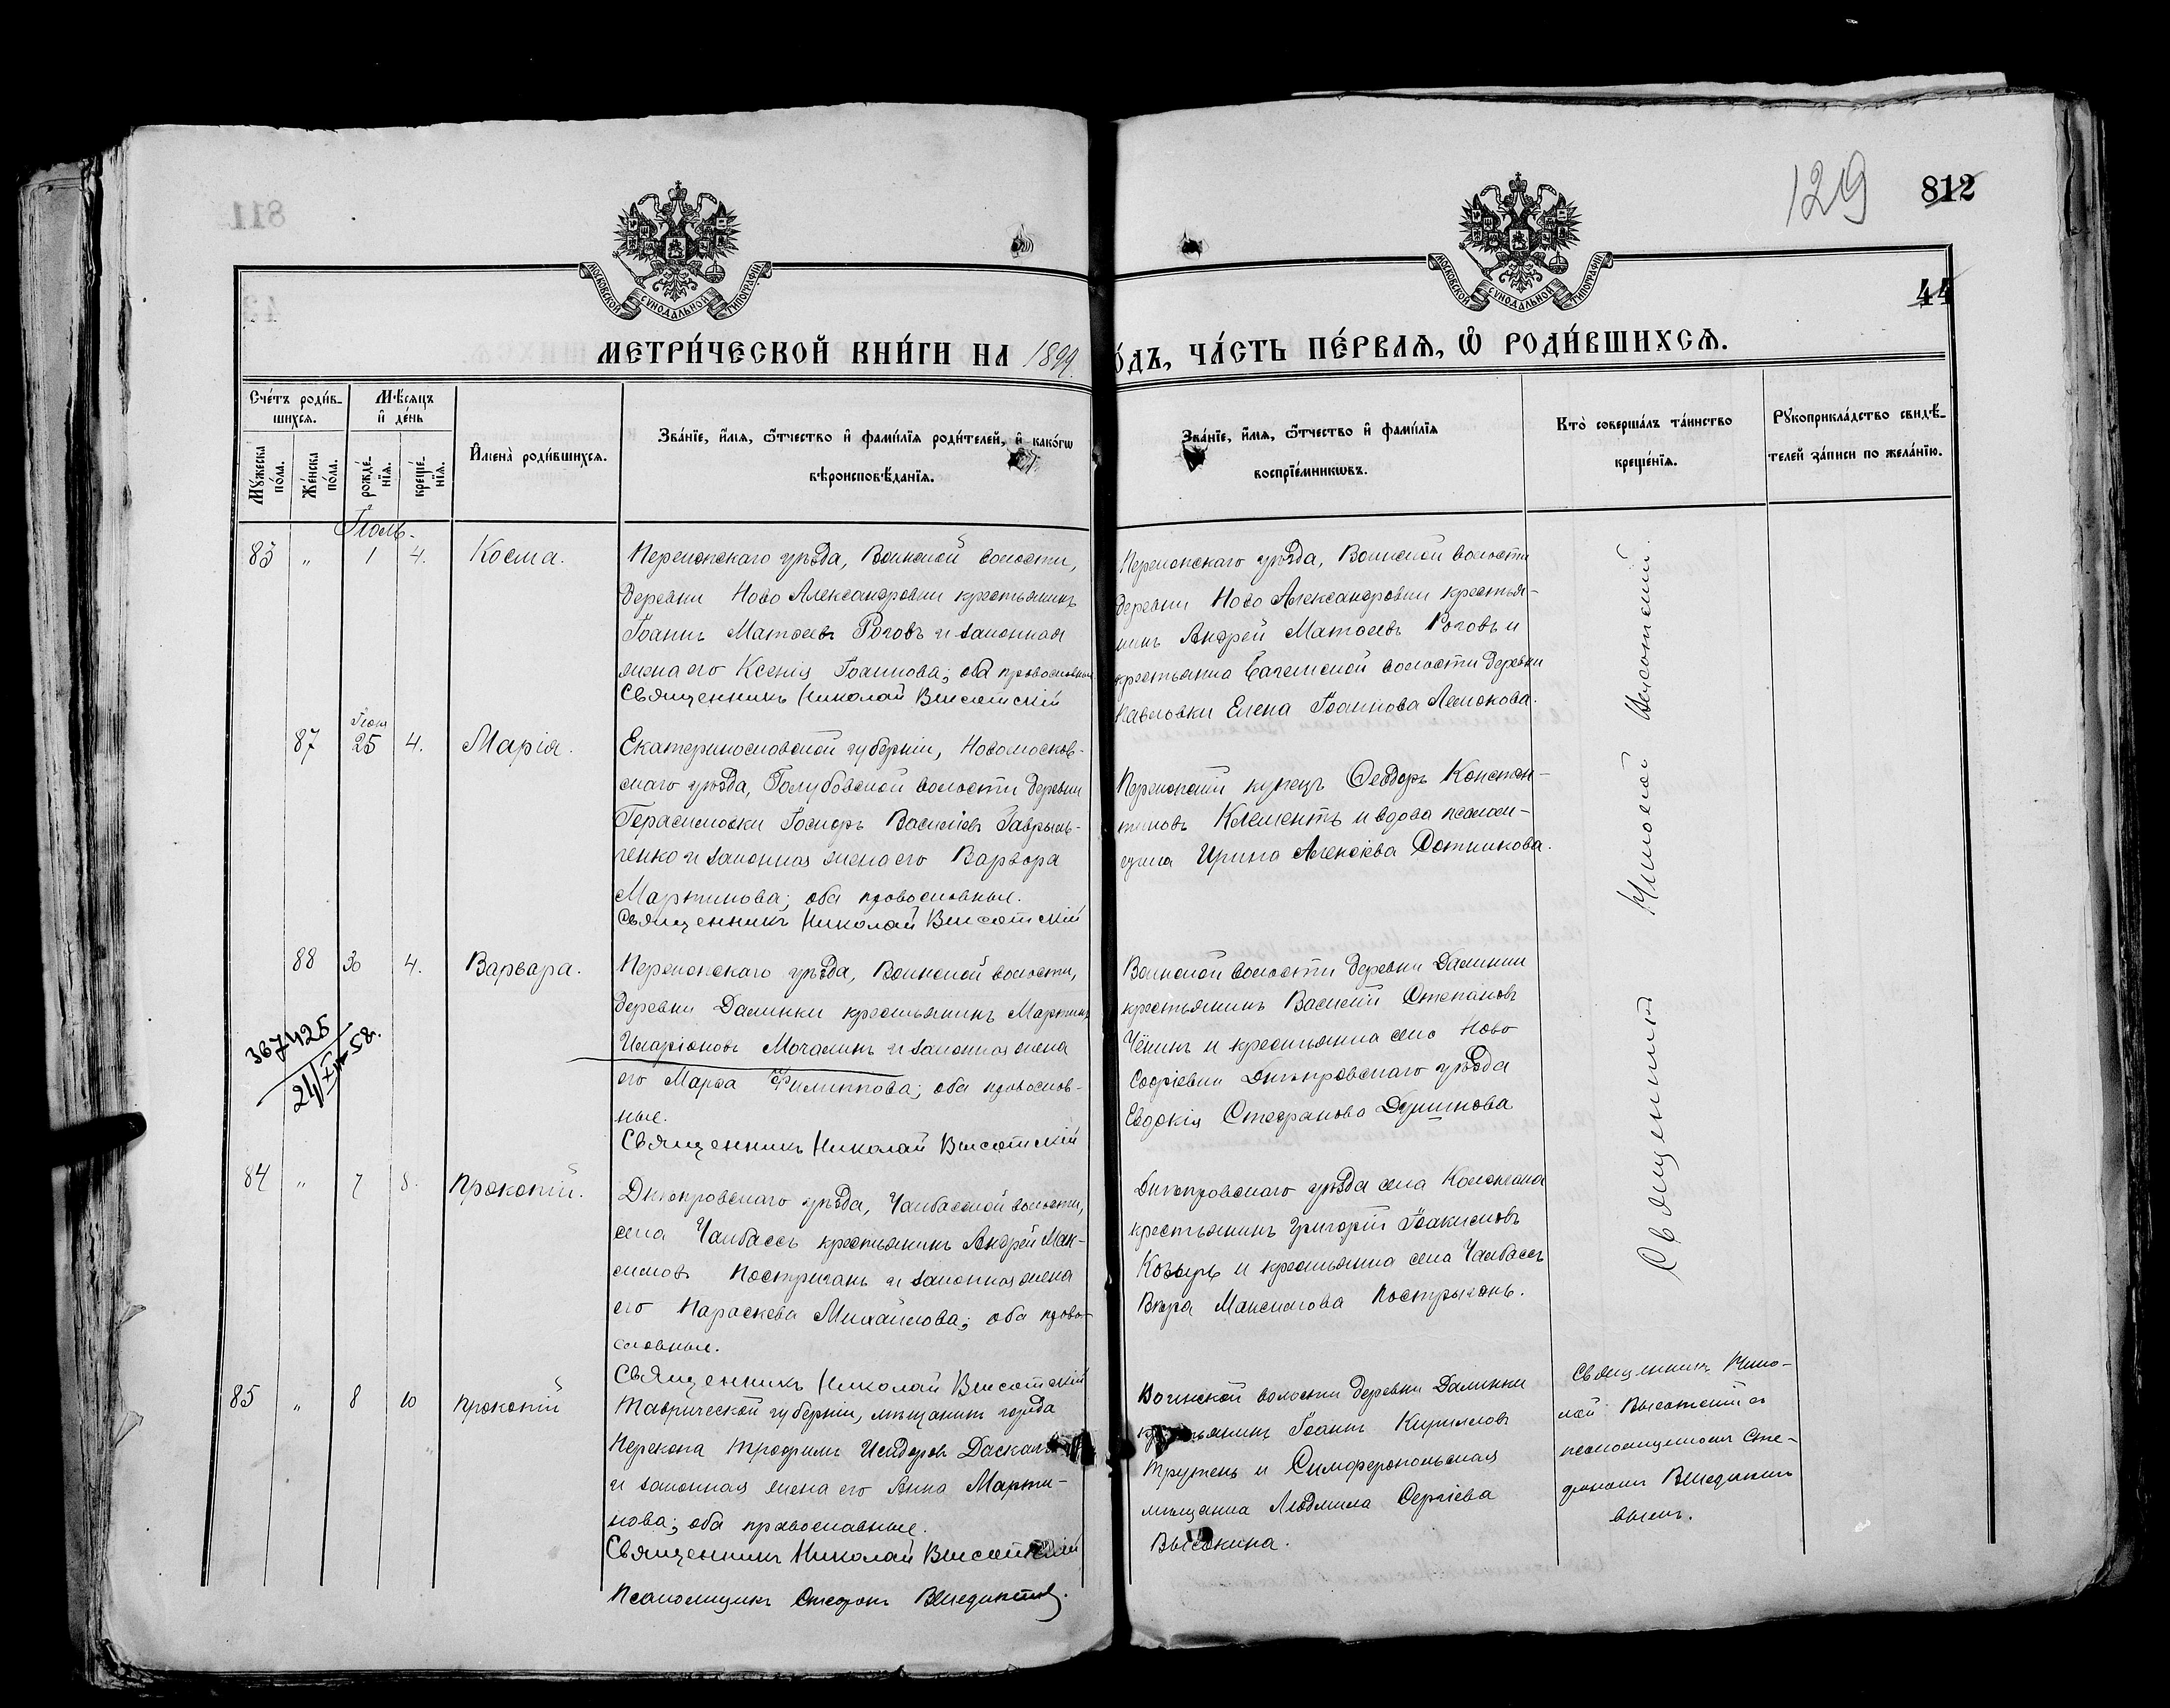 129
812
44
МОСКОВСКОЙ СѴНОДАЛЬНОЙ ТИПОГРАФІИ
МОСКОВСКОЙ СѴНОДАЛЬНОЙ ТИПОГРАФІИ
МЕТРИ́ЧЕСКОЙ КНИ́ГИ НА 1899
О́ДЪ, ЧА́СТЬ ПЕ́РВАѦ, Ѡ҆ РОДИ́ВШИХСѦ.
Сче́тъ роди́в-
шихсѧ.
Мѣ́сѧцъ
и҆ де́нь
Мꙋ́жеска
по́ла.
Же́нска
по́ла.
рожде́-
нїѧ.
креще́-
нїѧ.
И҆мена̀ роди́вшихсѧ.
Зва́нїе, и҆́мѧ, ѻ҆́тчество и҆ фами́лїѧ роди́телей, и҆ како́гѡ
вѣроисповѣ́данїѧ.
Зва́нїе, и҆́мѧ, ѻ҆́тчество и҆ фами́лїѧ
воспрїе́мникѡвъ.
Кто̀ соверша́лъ та́инство
креще́нїѧ.
Рꙋкоприкла́дство свидѣ́-
телей за́писи по жела́нїю.
Іюль.
83 " 1 4. Косма.
Перекопскаго уѣзда, Воинской волости,
деревни Ново Александровки крестьянинъ
Іоаннъ Матѳеевъ Роговъ и законная
жена его Ксенія Іоаннова; оба православные
Священникъ Николай Высотскій
Перекопскаго уѣзда, Воинской волости
деревни Ново Александровки крестья-
нинъ Андрей Матѳеевъ Роговъ и
крестьянка волости деревни
Павловки Елена Іоаннова
87 25 4. Марія.
Екатеринославской губерніи, Новомосков-
скаго уѣзда, Голубовской волости деревни
Герасимовки Василіевъ Гаврыль-
ченко и законная жена его Варвара
Мартинова; оба православные.
Священникъ Николай Высотскій
Перекопскій купецъ Ѳеодоръ Констан-
тиновъ Клементъ и вдова псалом-
щика Ирина Алексіева Сотникова.
88 30 4. Варвара.
Перекопскаго уѣзда, Воинской волости,
деревни Далинки крестьянинъ Мартинъ
Иларіоновъ Мочалинъ и законная жена
его Марѳа Филиппова; оба православ-
ные.
Священникъ Николай Высотскій
Воинской волости деревни Далинки
крестьянинъ Василій Степановъ
и крестьянка села Ново
Софіевки Днѣпровскаго уѣзда
Евдокія Стефанова
367425
21/XII-58г.
84 " 7 8. Прокопій.
Днѣпровскаго уѣзда, Чалбасской волости,
села Чалбассъ крестьянинъ Андрей Мак-
симовъ Постригань и законная жена
его Параскева Михайлова; оба право-
славные.
Священникъ Николай Высотскій
Днѣпровскаго уѣзда села
крестьянинъ Григорій Іоакимовъ
Козырь и крестьянка села Чалбассъ
Вѣра Максимова Постригань.
Священникъ Николай Высотскій.
85 " 8 10 Прокопій
Таврической губерніи, мѣщанинъ города
Перекопа Трофимъ Исидоровъ
и законная жена его Анна Марти-
нова; оба православные.
Священникъ Николай Высотскій
Псаломщикъ Стефанъ Венедиктовъ.
Воинской волости деревни Далинки
крестьянинъ Іоаннъ Кирилловъ
Трутень и Симферопольская
мѣщанка Людмила Сергіева
Высокина.
Священникъ Нико-
лай Высотскій съ
псаломщикомъ Сте-
фаномъ Венедикто-
вымъ.